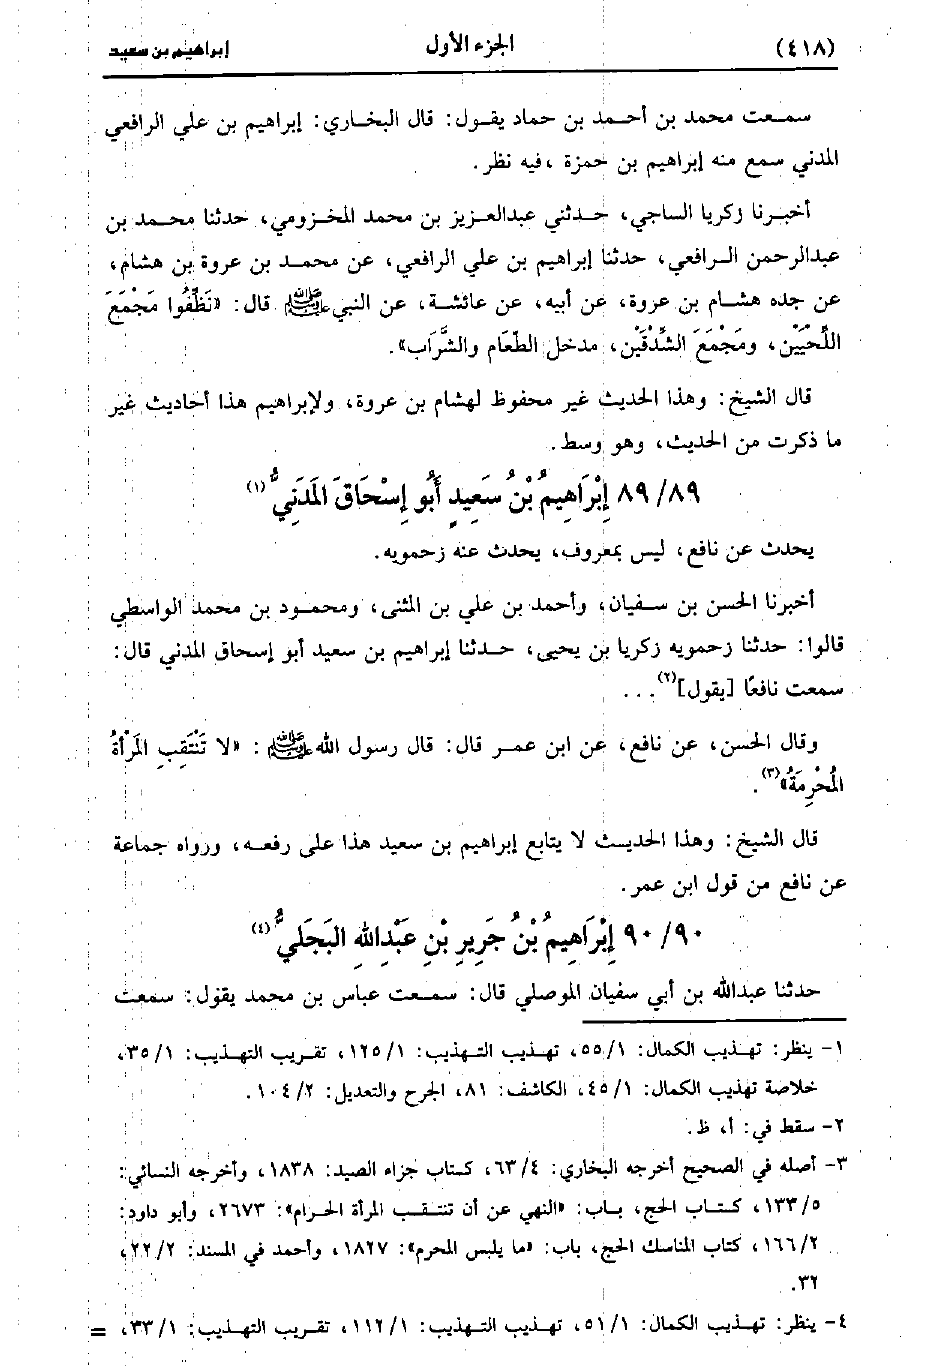 (٤١٨) الجزء الأول إبراهيم بن سعيد
سمعت محمد بن أحمد بن حماد يقول: قال البخاري: إبراهيم بن علي الرافعي
المدني سمع منه إبراهيم بن حمزة ،فيه نظر.
أخبرنا زكريا الساجي، حدثني عبدالعزيز بن محمد المخزومي، حدثنا محمد بن
عبدالرحمن الرافعي، حدثنا إبراهيم بن علي الرافعي، عن محمد بن عروة بن هشام،
عن جده هشام بن عروة، عن أبيه، عن عائشة، عن النبي ﷺ قال: «نَظِّفُوا مَجْمَعَ
اللَّحْيَيْنِ، ومَجْمَعَ الشِّدْقَيْنِ، مدخل الطَّعَام والشَّرَاب».
قال الشيخ: وهذا الحديث غير محفوظ لهشام بن عروة، ولإبراهيم هذا أحاديث غير
ما ذكرت من الحديث، وهو وسط.
٨٩/ ٨٩ إِبْرَاهِيمُ بْنُ سَعِيدٍ أَبُو إِسْحَاقَ المَدَنِيُّ(١)
يحدث عن نافع، ليس بمعروف، يحدث عنه زحمويه.
أخبرنا الحسن بن سفيان، وأحمد بن علي بن المثنى، ومحمود بن محمد الواسطي
قالوا: حدثنا زحمويه زكريا بن يحيى، حدثنا إبراهيم بن سعيد أبو إسحاق المدني قال:
سمعت نافعًا [يقول](٢) ...
وقال الحسن، عن نافع، عن ابن عمر قال: قال رسول الله ﷺ : «لا تَنْتَقِبِ المَرْأَةُ
المُحْرِمَةُ»(٣).
قال الشيخ: وهذا الحديث لا يتابع إبراهيم بن سعيد هذا على رفعه، ورواه جماعة
عن نافع من قول ابن عمر.
٩٠/ ٩٠ إِبْرَاهِيمُ بْنُ جَرِيرِ بْنِ عَبْدِاللهِ البَجَلِيُّ(٤)
حدثنا عبدالله بن أبي سفيان الموصلي قال: سمعت عباس بن محمد يقول: سمعت
١- ينظر: تهذيب الكمال: ١/ ٥٥، تهذيب التهذيب: ١/ ١٢٥، تقريب التهذيب: ١/ ٣٥،
خلاصة تهذيب الكمال: ١/ ٤٥، الكاشف: ٨١، الجرح والتعديل: ٢/ ١٠٤.
٢- سقط في: أ، ظ.
٣- أصله في الصحيح أخرجه البخاري: ٤/ ٦٣، كتاب جزاء الصيد: ١٨٣٨، وأخرجه النسائي:
٥/ ١٣٣، كتاب الحج، باب: «النهي عن أن تنتقب المرأة الحرام»: ٢٦٧٣، وأبو داود:
٢/ ١٦٦، كتاب المناسك الحج، باب: «ما يلبس المحرم»: ١٨٢٧، وأحمد في المسند: ٢/ ٢٢،
٣٢.
٤- ينظر: تهذيب الكمال: ١/ ٥١، تهذيب التهذيب: ١/ ١١٢، تقريب التهذيب: ١/ ٣٣، =